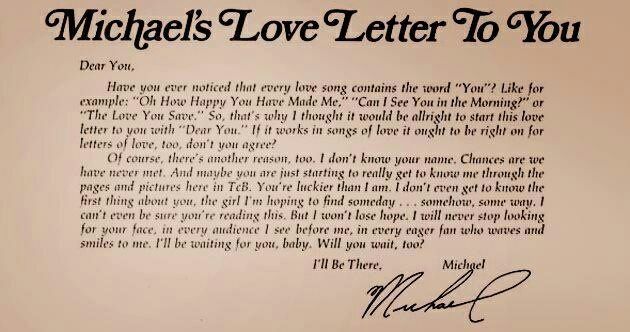 Michael's Love Letter To You
Dear You,
Have you ever noticed that every love song contains the word "You"? Like for
example: "Oh How Happy You Have Made Me," "Can I See You in the Morning?" or
"The Love You Save." So, that's why I thought it would be allright to start this love
letter to you with "Dear You." If it works in songs of love it ought to be right on for
letters of love, too, don't you agree?
Of course, there's another reason, too. I don't know your name. Chances are we
have never met. And maybe you are just starting to really get to know me through the
pages and pictures here in TcB. You're luckier than I am. I don't even get to know the
first thing about you, the girl I'm hoping to find someday . . . somehow, some way. I
can't even be sure you're reading this. But I won't lose hope. I will never stop looking
for your face, in every audience I see before me, in every eager fan who waves and
smiles to me. I'll be waiting for you, baby. Will you wait, too?
I'll Be There, Michael
Michael